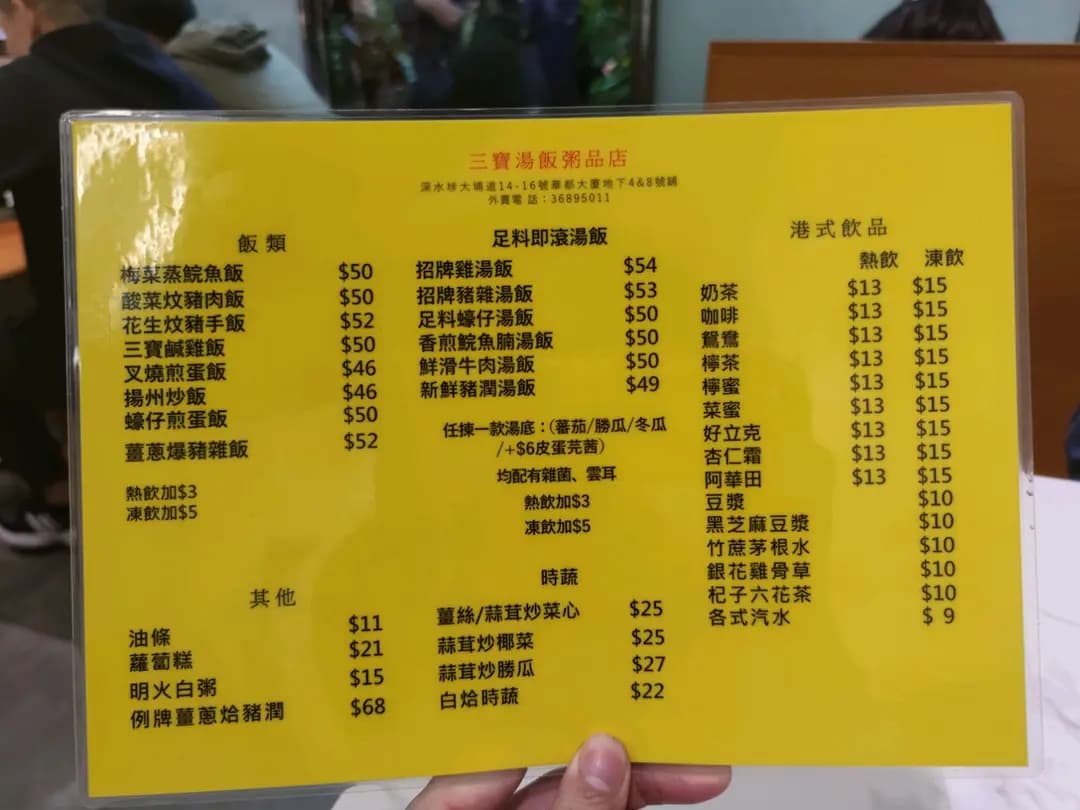 三寶湯飯粥品店
深水埗大埔道14-16號華都大廈地下4&8號鋪
外賣電話：36895011
飯類
梅菜蒸鯇魚飯 $50
酸菜炆豬肉飯 $50
花生炆豬手飯 $52
三寶鹹雞飯 $50
叉燒煎蛋飯 $46
揚州炒飯 $46
蠔仔煎蛋飯 $50
薑蔥爆豬雜飯 $52
熱飲加$3
凍飲加$5
其他
油條 $11
蘿蔔糕 $21
明火白粥 $15
例牌薑蔥烚豬潤 $68
足料即滾湯飯
招牌雞湯飯 $54
招牌豬雜湯飯 $53
足料蠔仔湯飯 $50
香煎鯇魚腩湯飯 $50
鮮滑牛肉湯飯 $50
新鮮豬潤湯飯 $49
任揀一款湯底：(蕃茄/勝瓜/冬瓜
/+$6皮蛋芫茜)
均配有雜菌、雲耳
熱飲加$3
凍飲加$5
時蔬
薑絲/蒜茸炒菜心 $25
蒜茸炒椰菜 $25
蒜茸炒勝瓜 $27
白烚時蔬 $22
港式飲品
熱飲 凍飲
奶茶 $13 $15
咖啡 $13 $15
鴛鴦 $13 $15
檸茶 $13 $15
檸蜜 $13 $15
菜蜜 $13 $15
好立克 $13 $15
杏仁霜 $13 $15
阿華田 $13 $15
豆漿 $10
黑芝麻豆漿 $10
竹蔗茅根水 $10
銀花雞骨草 $10
杞子六花茶 $10
各式汽水 $ 9